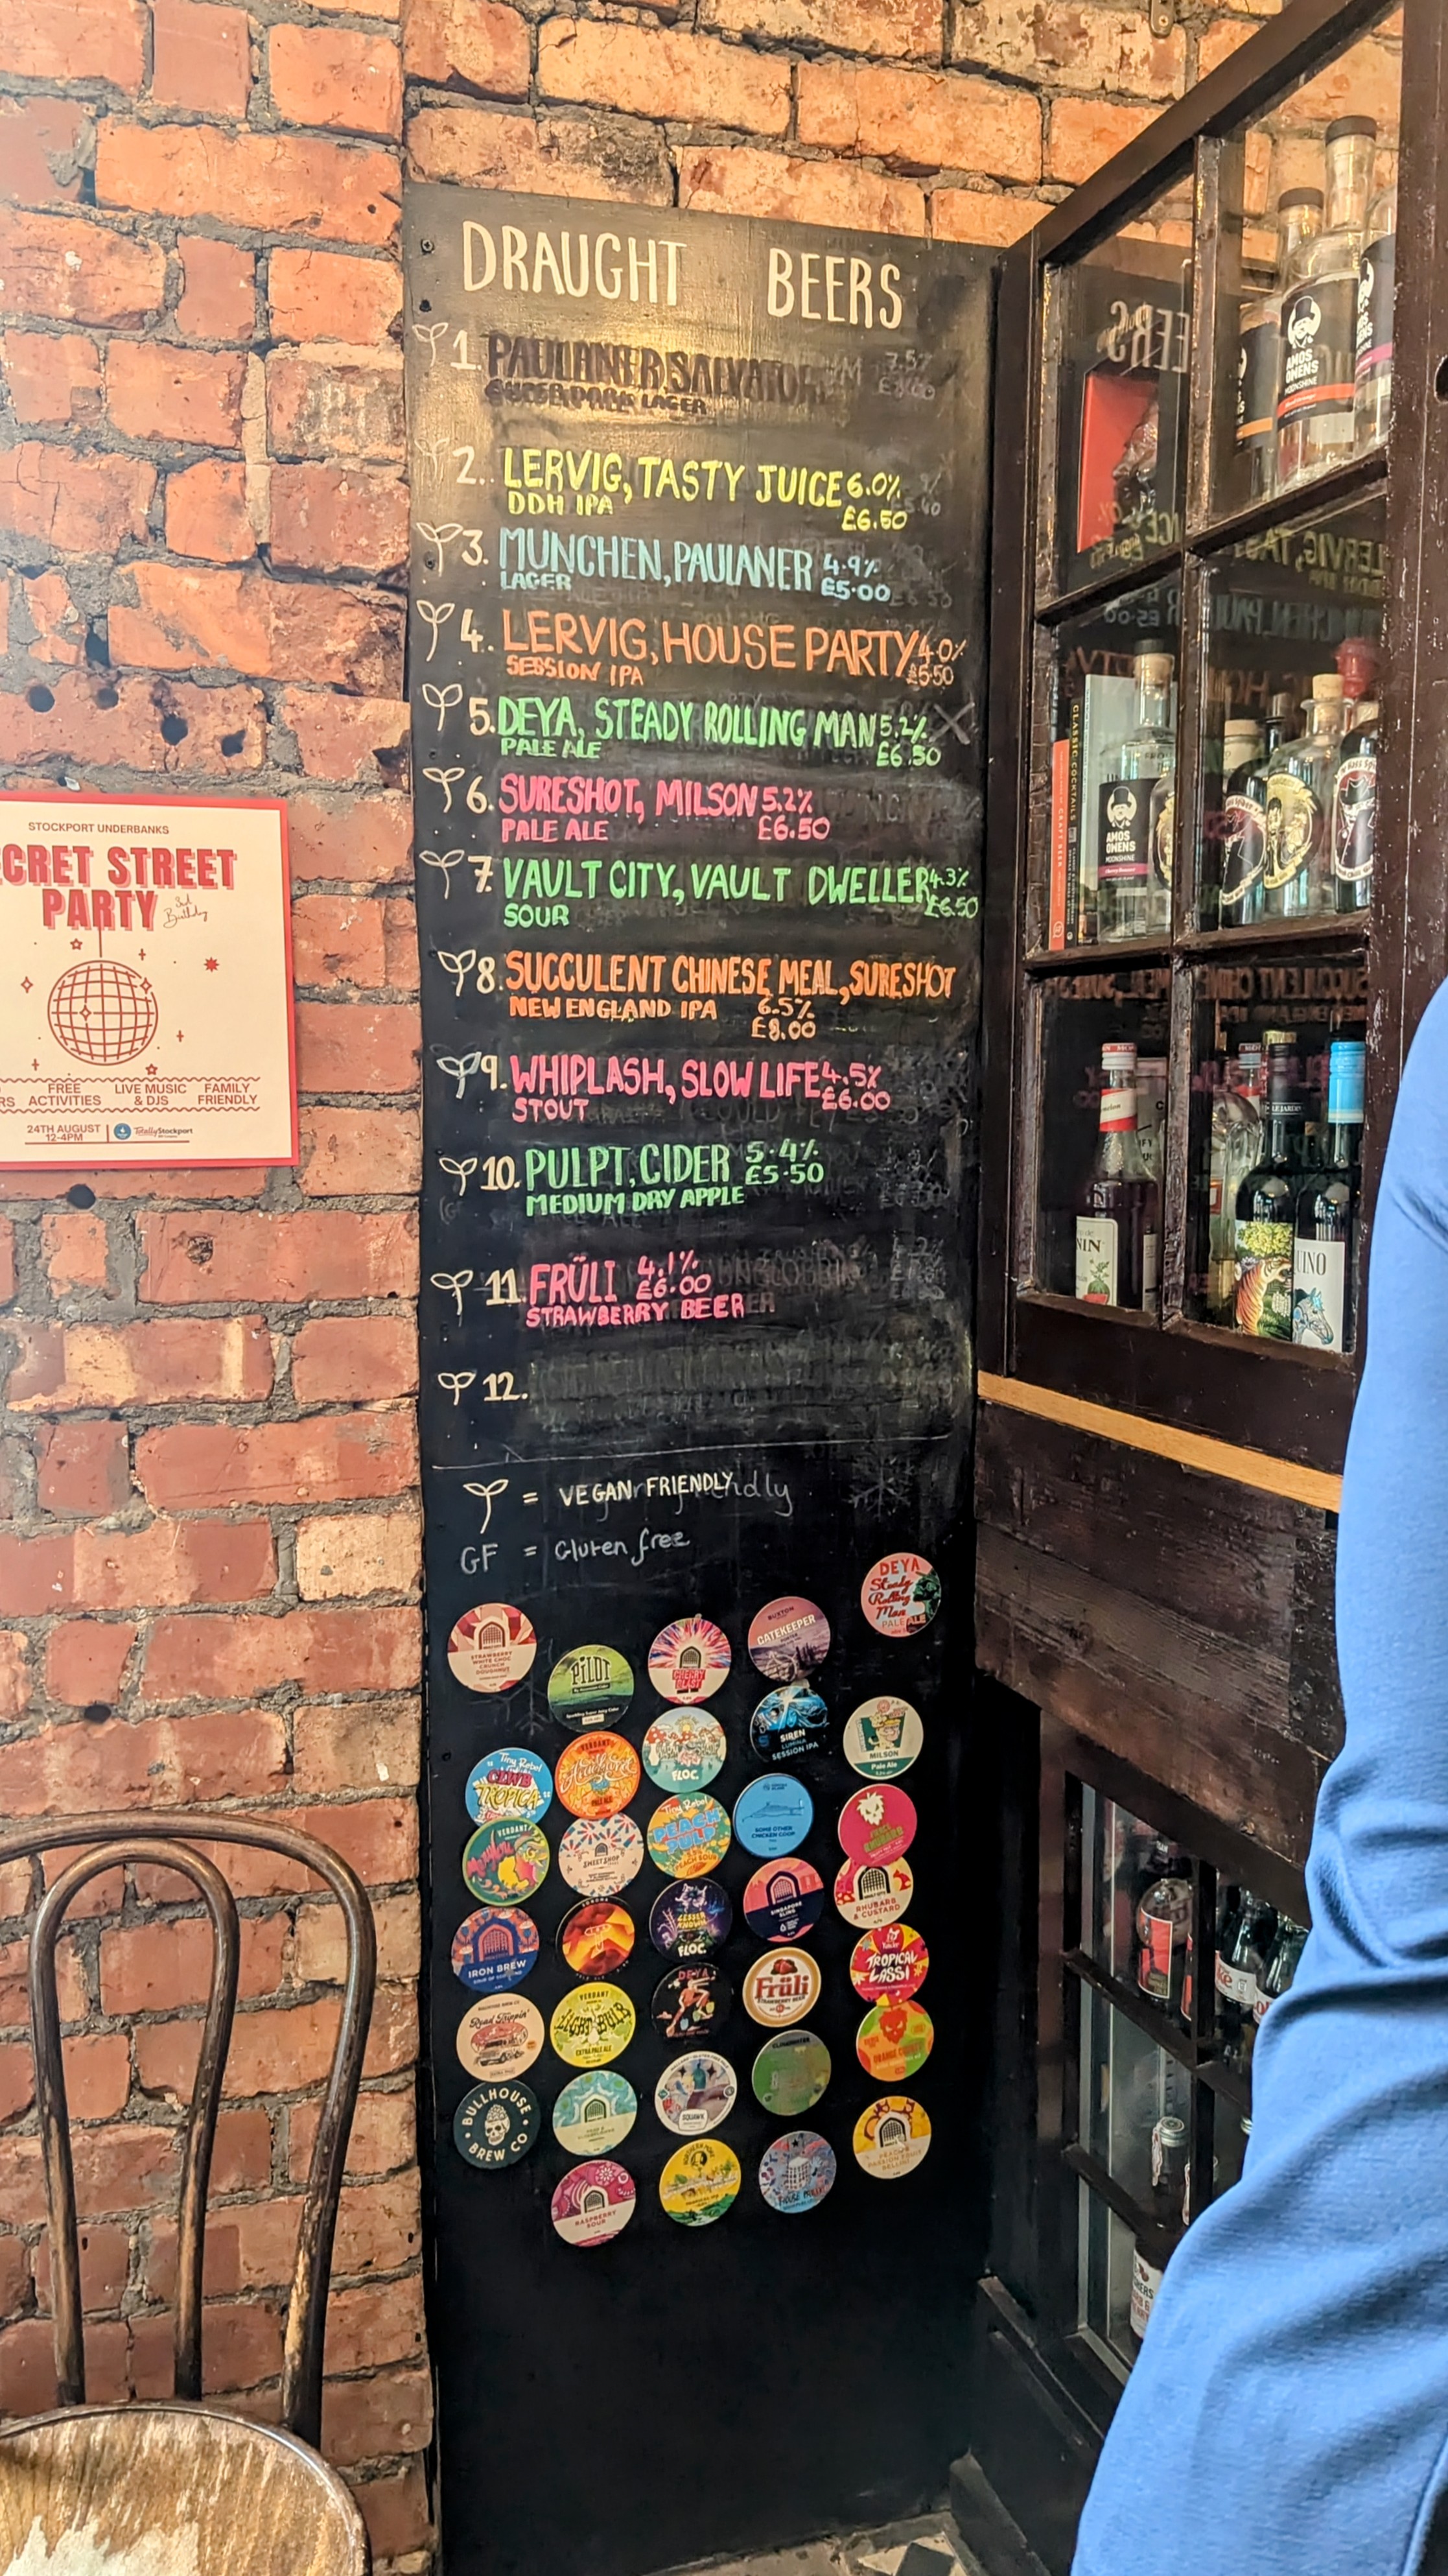 DRAUGHT BEERS
1 PAULANER SALVATOR 7.5%
LAGER
2. LERVIG, TASTY JUICE 6.0%
DDH IPA £6.50
3. MUNCHEN, PAULANER 4.9%
LAGER £5.00
4. LERVIG, HOUSE PARTY 4.0%
SESSION IPA £5.50
5. DEYA, STEADY ROLLING MAN 5.2%
PALE ALE £6.50
6. SURESHOT, MILSON 5.2%
PALE ALE £6.50
7. VAULT CITY, VAULT DWELLER 4.3%
SOUR £6.50
8. SUCCULENT CHINESE MEAL, SURESHOT
NEW ENGLAND IPA 6.5%
£8.00
9. WHIPLASH, SLOW LIFE 4.5%
STOUT £6.00
10. PULPT, CIDER 5.4%
£5.50
MEDIUM DRY APPLE
11. FRÜLI 4.1%
£6.00
STRAWBERRY BEER
12.
= VEGAN FRIENDLY
GF = Gluten free
STOCKPORT UNDERBANKS
CRET STREET
PARTY
3rd Birthday
FREE
ACTIVITIES
LIVE MUSIC
& DJS
FAMILY
FRIENDLY
24TH AUGUST
12-4PM
TotallyStockport
DEYA
Steady
Rolling
Man
PALE ALE
STRAWBERRY
WHITE CHOC
CRUNCH
DOUGHNUT
PILOT
CHERRY
BLAST
BUXTON
GATEKEEPER
SIREN
LUMINA
SESSION IPA
MILSON
Pale Ale
Tiny Rebel
CLWB
TROPICA
VERDANT
PALE ALE
FLOC.
VERDANT
SWEET SHOP
Tiny Rebel
PEACH
PULP
SOME OTHER
CHICKEN COOP
RHUBARB
& CUSTARD
SINGAPORE
SLING
FLOC.
IRON BREW
TROPICAL
LASSI
Früli
STRAWBERRY BEER
DEYA
VERDANT
LIGHT BULB
EXTRA PALE ALE
Road Trippin'
BULLHOUSE
BREW CO
SQUAWK
CLOUDWATER
RASPBERRY
SOUR
HOUSE PARTY
AMOS
OWENS
MOONSHINE
CLASSIC COCKTAILS
AMOS
OWENS
MOONSHINE